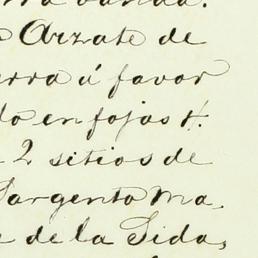 Arzate de
rra á favor
do en fojas 4.
2 sitios de
Sargento Ma.
de la Sida,